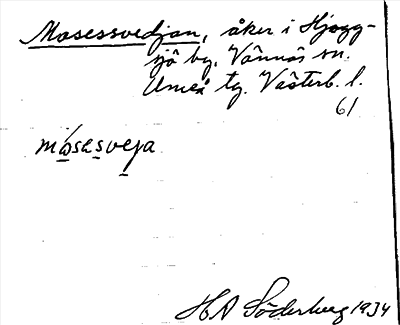 Mosessvedjan, åker i Hjogg-
sjö by, Vännäs sn.
Umeå tg. Västerb. l.
61
mosesveja
H A Söderberg 1934